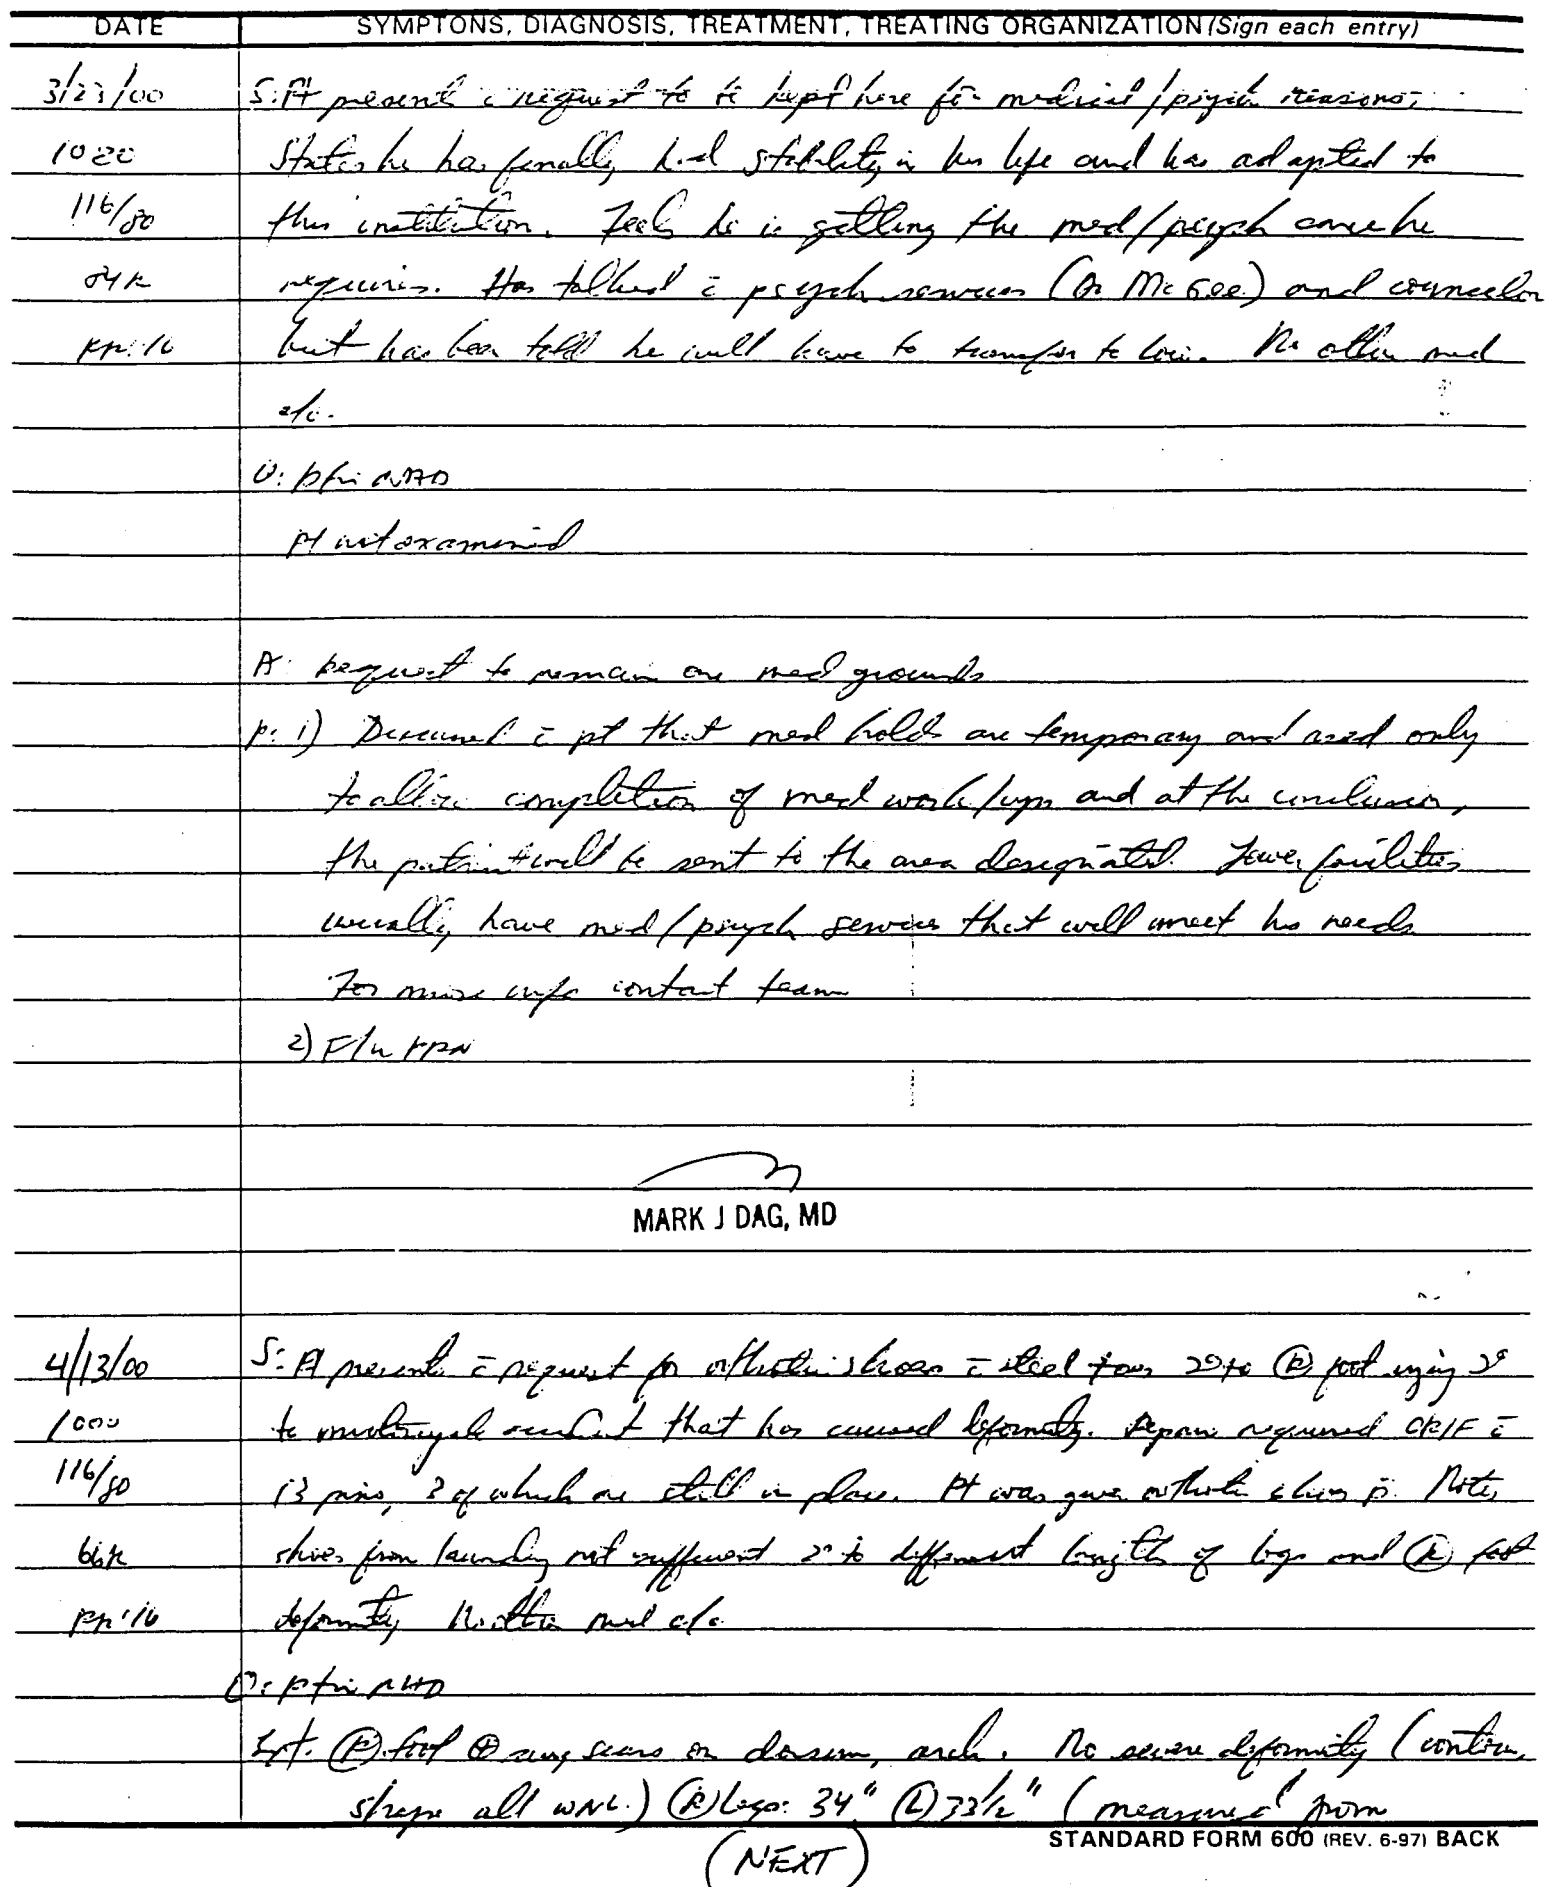 DATE SYMPTONS, DIAGNOSIS, TREATMENT, TREATING ORGANIZATION (Sign each entry)
3/23/00 S: Pt presents c̄ request to be kept here for medical/psych reasons;
1020 States he has finally had stability in his life and has adapted to
116/80 this institution. Feels he is getting the med/psych care he
requires. Has talked c̄ psych services (Dr McGee) and counselor
RR: 16 but has been told he will have to transfer to low. No other med
c/o.
O: pt in NAD
Pt not examined
A: Request to remain on med grounds
P: 1) Discussed c̄ pt that med holds are temporary and used only
to allow completion of med work/ups and at the conclusion,
the patient will be sent to the area designated. Lower facilities
usually have med/psych services that will meet his needs
For more info contact team
2) F/u PRN
MARK J DAG, MD
4/13/00 S: Pt presents c̄ request for orthotic shoes c̄ steel toes 2° to Ⓡ foot 2°
1000 to motorcycle accident that has caused deformity. Repair required ORIF c̄
116/80 13 pins, 3 of which are still in place. Pt was given orthotic shoes Notes
66R shoes from laundry not sufficient 2° to different lengths of legs and Ⓡ foot
RR: 16 deformity No other med c/o
O: Pt in NAD
Ext. Ⓡ foot ⊕ surg scars on dorsum, arch. No severe deformity (contour,
shape all WNL.) Ⓡ Legs: 34" Ⓛ 33½" (measured from
STANDARD FORM 600 (REV. 6-97) BACK
(NEXT)